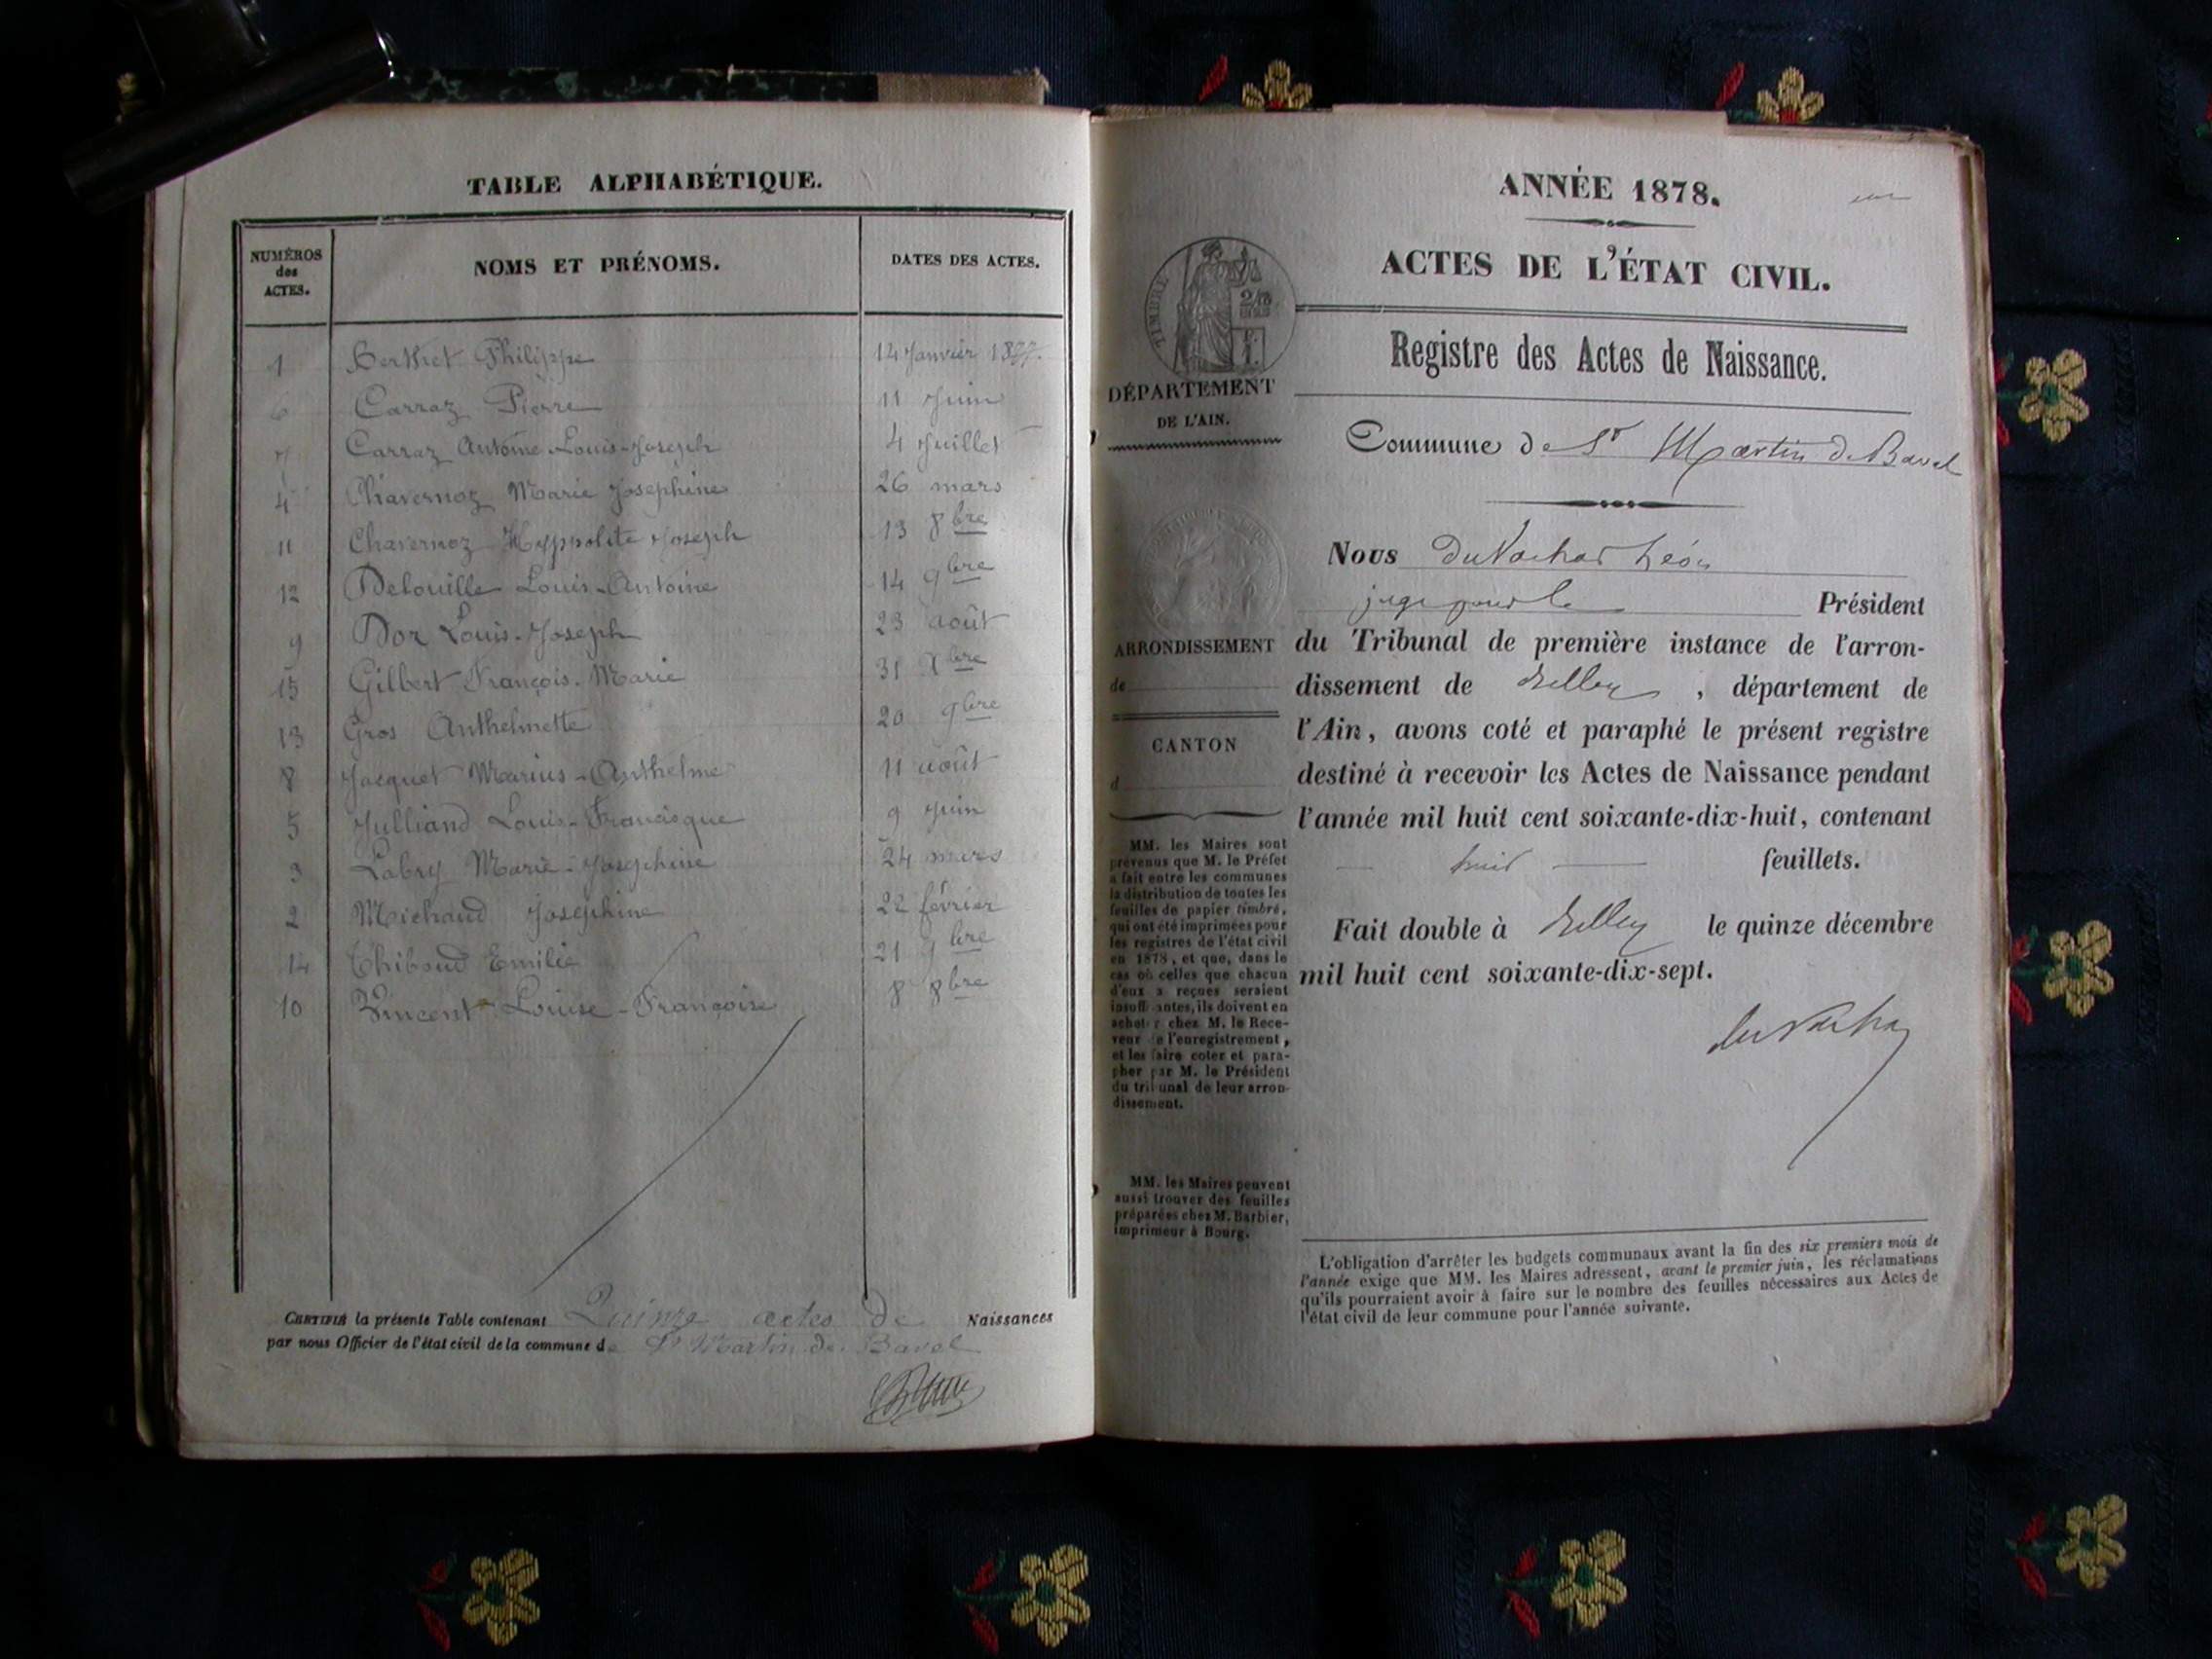 TABLE ALPHABÉTIQUE.
NUMÉROS
des
ACTES.
NOMS ET PRÉNOMS.
DATES DES ACTES.
1 Berthet Philippe 14 Janvier 1877.
6 Carraz Pierre 11 Juin
7 Carraz Antoine-Louis-Joseph 4 Juillet
4 Chavernoz Marie Josephine 26 mars
11 Chavernoz Hyppolite Joseph 13 8bre
12 Delouille Louis-Antoine 14 9bre
9 Dor Louis-Joseph 23 août
15 Gilbert François-Marie 31 Xbre
13 Gros Anthelmette 20 9bre
8 Jacquet Marius-Anthelme 11 août
5 Julliand Louis-Francisque 9 Juin
3 Labry Marie-Josephine 24 mars
2 Michaud Josephine 22 février
14 Thiboud Emilie 21 9bre
10 Vincent Louise-Françoise 8 8bre
CERTIFIÉ la présente Table contenant Quinze actes de Naissances
par nous Officier de l'état civil de la commune de St Martin de Bavel
ANNÉE 1878.
ACTES DE L'ÉTAT CIVIL.
TIMBRE
Registre des Actes de Naissance.
DÉPARTEMENT
DE L'AIN.
Commune de St Martin de Bavel
Nous
juge pour le Président
ARRONDISSEMENT
de
CANTON
d
du Tribunal de première instance de l'arron-
dissement de Belley, département de
l'Ain, avons coté et paraphé le présent registre
destiné à recevoir les Actes de Naissance pendant
l'année mil huit cent soixante-dix-huit, contenant
huit feuillets.
Fait double à Belley le quinze décembre
mil huit cent soixante-dix-sept.
MM. les Maires sont
prévenus que M. le Préfet
a fait entre les communes
la distribution de toutes les
feuilles de papier timbré,
qui ont été imprimées pour
les registres de l'état civil
en 1878, et que, dans le
cas où celles que chacun
d'eux a reçues seraient
insuffisantes, ils doivent en
acheter chez M. le Rece-
veur de l'enregistrement,
et les faire coter et para-
pher par M. le Président
du tribunal de leur arron-
dissement.
MM. les Maires peuvent
aussi trouver des feuilles
préparées chez M. Barbier,
imprimeur à Bourg.
L'obligation d'arrêter les budgets communaux avant la fin des six premiers mois de
l'année exige que MM. les Maires adressent, avant le premier juin, les réclamations
qu'ils pourraient avoir à faire sur le nombre des feuilles nécessaires aux Actes de
l'état civil de leur commune pour l'année suivante.